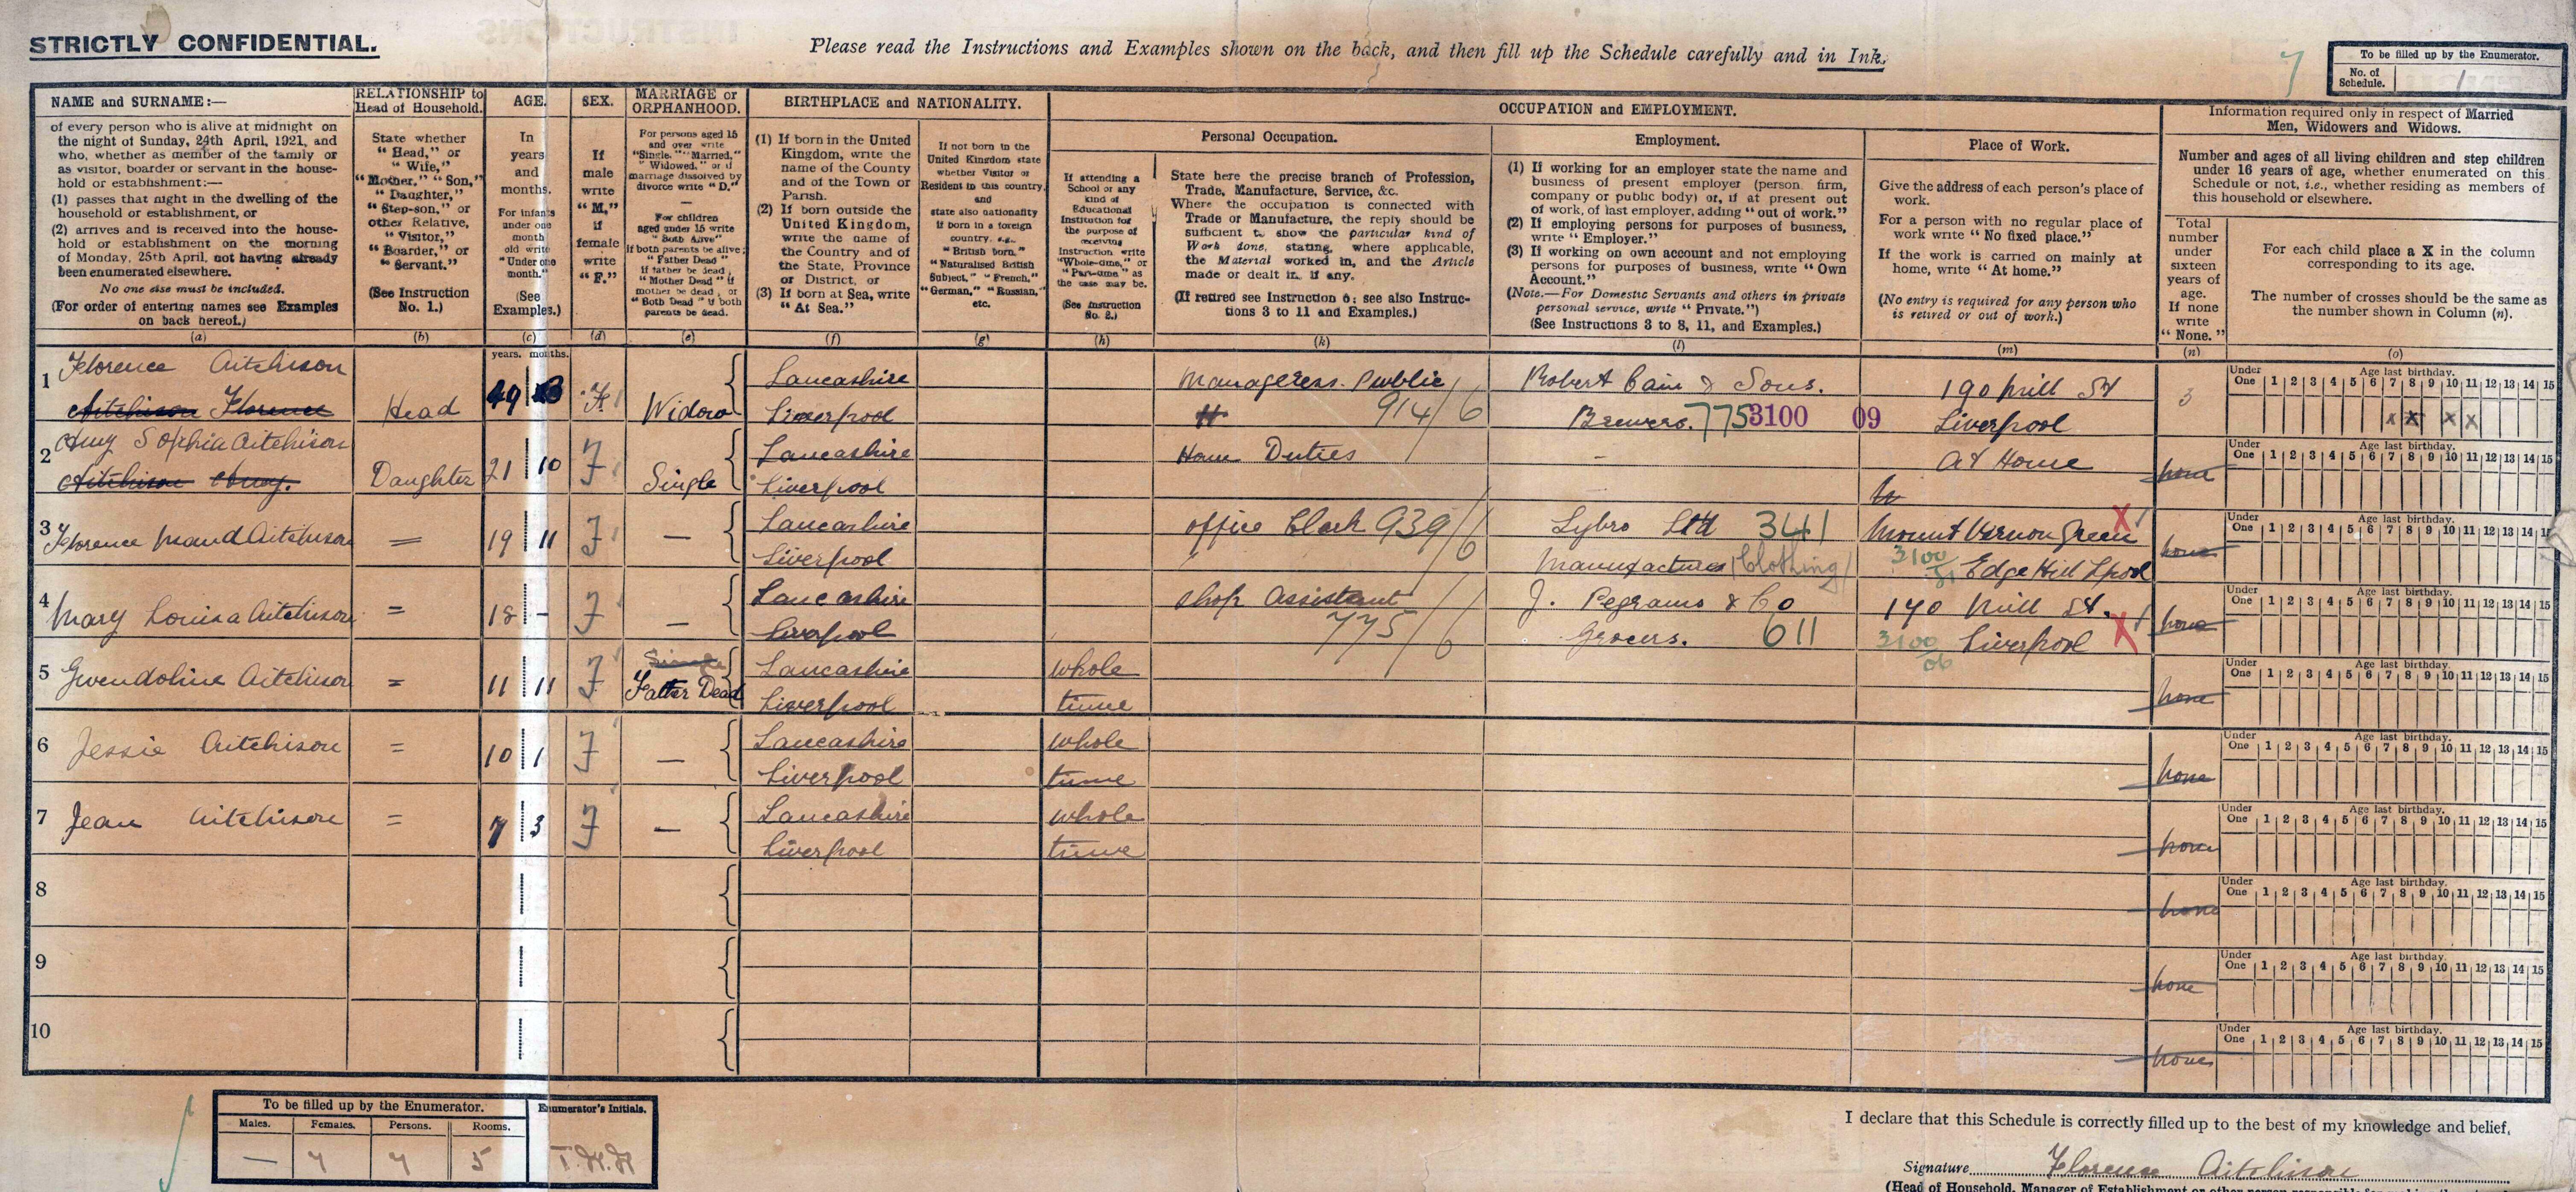 STRICTLY CONFIDENTIAL.
Please read the Instructions and Examples shown on the back, and then fill up the Schedule carefully and in Ink.
7
To be filled up by the Enumerator.
No. of Schedule. 1
NAME and SURNAME:—
of every person who is alive at midnight on
the night of Sunday, 24th April, 1921, and
who, whether as member of the family or
as visitor, boarder or servant in the house-
hold or establishment:—
(1) passes that night in the dwelling of the
household or establishment, or
(2) arrives and is received into the house-
hold or establishment on the morning
of Monday, 25th April, not having already
been enumerated elsewhere.
No one else must be included.
(For order of entering names see Examples
on back hereof.)
(a)
RELATIONSHIP to
Head of Household.
State whether
"Head," or
"Wife,"
"Mother," "Son,"
"Daughter,"
"Step-son," or
other Relative,
"Visitor,"
"Boarder," or
"Servant."
(See Instruction
No. 1.)
(b)
AGE.
In
years
and
months.
For infants
under one
month
old write
"Under one
month."
(See
Examples.)
(c)
SEX.
If
male
write
"M,"
if
female
write
"F."
(d)
MARRIAGE or
ORPHANHOOD.
For persons aged 15
and over write
"Single," "Married,"
"Widowed," or if
marriage dissolved by
divorce write "D."
—
For children
aged under 15 write
"Both Alive"
if both parents be alive;
"Father Dead"
if father be dead,
"Mother Dead" if
mother be dead, or
"Both Dead" if both
parents be dead.
(e)
BIRTHPLACE and NATIONALITY.
(1) If born in the United
Kingdom, write the
name of the County
and of the Town or
Parish.
(2) If born outside the
United Kingdom,
write the name of
the Country and of
the State, Province
or District, or
(3) If born at Sea, write
"At Sea."
(f)
If not born in the
United Kingdom state
whether Visitor or
Resident in this country,
and
state also nationality
if born in a foreign
country, e.g.,
"British born,"
"Naturalised British
Subject," "French,"
"German," "Russian,"
etc.
(g)
OCCUPATION and EMPLOYMENT.
If attending a
School or any
kind of
Educational
Institution for
the purpose of
receiving
Instruction write
"Whole-time," or
"Part-time" as
the case may be.
(See Instruction
No. 2.)
(h)
Personal Occupation.
State here the precise branch of Profession,
Trade, Manufacture, Service, &c.
Where the occupation is connected with
Trade or Manufacture, the reply should be
sufficient to show the particular kind of
Work done, stating, where applicable,
the Material worked in, and the Article
made or dealt in, if any.
(If retired see Instruction 6; see also Instruc-
tions 3 to 11 and Examples.)
(k)
Employment.
(1) If working for an employer state the name and
business of present employer (person, firm,
company or public body) or, if at present out
of work, of last employer, adding "out of work."
(2) If employing persons for purposes of business,
write "Employer."
(3) If working on own account and not employing
persons for purposes of business, write "Own
Account."
(Note.—For Domestic Servants and others in private
personal service, write "Private.")
(See Instructions 3 to 8, 11, and Examples.)
(l)
Place of Work.
Give the address of each person's place of
work.
For a person with no regular place of
work write "No fixed place."
If the work is carried on mainly at
home, write "At home."
(No entry is required for any person who
is retired or out of work.)
(m)
Information required only in respect of Married
Men, Widowers and Widows.
Number and ages of all living children and step children
under 16 years of age, whether enumerated on this
Schedule or not, i.e., whether residing as members of
this household or elsewhere.
Total
number
under
sixteen
years of
age.
If none
write
"None."
(n)
For each child place a X in the column
corresponding to its age.
The number of crosses should be the same as
the number shown in Column (n).
(o)
years. months.
1 Florence Aitchison
Aitchison Florence Head 49 F Widow Lancashire
Liverpool Manageress Public 914/6 Robert Cain & Sons. Brewers. 775 3100 09 190 Mill St Liverpool 3
Under One 1 2 3 4 5 6 7 8 9 10 11 12 13 14 15 Age last birthday.
x x x x
2 Amy Sophia Aitchison
Aitchison Amy. Daughter 21 10 F Single Lancashire
Liverpool Home Duties - At Home none
Under One 1 2 3 4 5 6 7 8 9 10 11 12 13 14 15 Age last birthday.
3 Florence Maud Aitchison = 19 11 F — Lancashire
Liverpool Office Clerk 939/6 Lybro Ltd 341 Manufactures (Clothing) Mount Vernon Green X 3100/31 Edge Hill Lpool none
Under One 1 2 3 4 5 6 7 8 9 10 11 12 13 14 15 Age last birthday.
4 Mary Louisa Aitchison = 18 - F — Lancashire
Liverpool Shop Assistant 775/6 J. Pegrams & Co Grocers. 611 170 Mill St. 3100/06 Liverpool X none
Under One 1 2 3 4 5 6 7 8 9 10 11 12 13 14 15 Age last birthday.
5 Gwendoline Aitchison = 11 11 F Single Father Dead Lancashire
Liverpool whole time none
Under One 1 2 3 4 5 6 7 8 9 10 11 12 13 14 15 Age last birthday.
6 Jessie Aitchison = 10 1 F — Lancashire
Liverpool whole time none
Under One 1 2 3 4 5 6 7 8 9 10 11 12 13 14 15 Age last birthday.
7 Jean Aitchison = 7 3 F — Lancashire
Liverpool whole time none
Under One 1 2 3 4 5 6 7 8 9 10 11 12 13 14 15 Age last birthday.
8 none
Under One 1 2 3 4 5 6 7 8 9 10 11 12 13 14 15 Age last birthday.
9 none
Under One 1 2 3 4 5 6 7 8 9 10 11 12 13 14 15 Age last birthday.
10 none
Under One 1 2 3 4 5 6 7 8 9 10 11 12 13 14 15 Age last birthday.
To be filled up by the Enumerator. Enumerator's Initials.
Males. Females. Persons. Rooms.
— 7 7 5
I declare that this Schedule is correctly filled up to the best of my knowledge and belief.
Signature Florence Aitchison